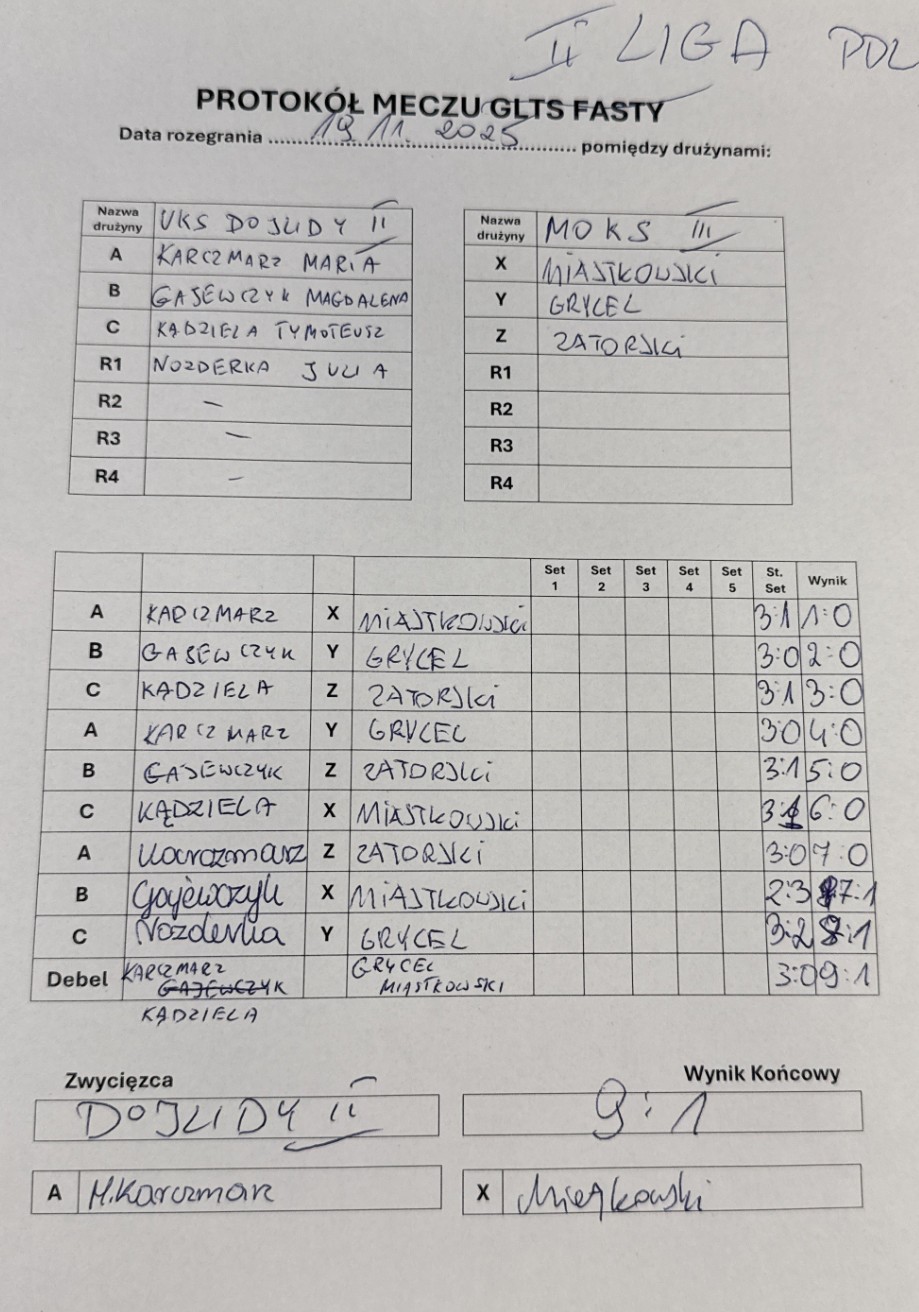 II LIGA PDL
PROTOKÓŁ MECZU GLTS FASTY
Data rozegrania 19.11.2025 pomiędzy drużynami:
Nazwa drużyny UKS DOJLIDY II
A KARCZMARZ MARIA
B GAJEWCZYK MAGDALENA
C KĄDZIELA TYMOTEUSZ
R1 NOZDERKA JULIA
R2 —
R3 —
R4 —
Nazwa drużyny MOKS III
X MIASTKOWSKI
Y GRYCEL
Z ZATORSKI
R1
R2
R3
R4
Set 1 Set 2 Set 3 Set 4 Set 5 St. Set Wynik
A KARCZMARZ X MIASTKOWSKI 3:1 1:0
B GAJEWCZYK Y GRYCEL 3:0 2:0
C KĄDZIELA Z ZATORSKI 3:1 3:0
A KARCZMARZ Y GRYCEL 3:0 4:0
B GAJEWCZYK Z ZATORSKI 3:1 5:0
C KĄDZIELA X MIASTKOWSKI 3:1 6:0
A Karczmarz Z ZATORSKI 3:0 7:0
B Gajewczyk X MIASTKOWSKI 2:3 7:1
C Nozderka Y GRYCEL 3:2 8:1
Debel KARCZMARZ GAJEWCZYK GRYCEL MIASTKOWSKI 3:0 9:1
KĄDZIELA
Zwycięzca
DOJLIDY II
Wynik Końcowy
9:1
A M.Karczmarz
X Miastkowski